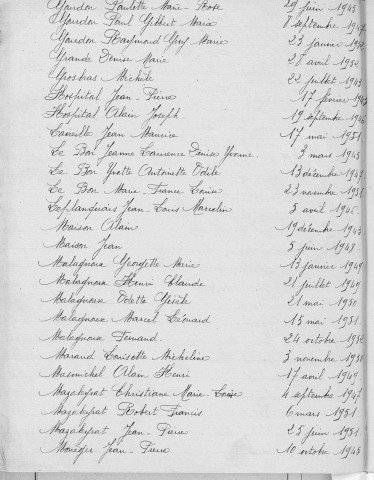 Gourdon Paulette Marie-Rose 29 juin 1948
Gourdon Paul Gilbert Marie 8 septembre
Gourdon Raymond Guy Marie 23 janvier
Grande Denise Marie 28 avril 1952
Grosbras Michèle 22 juillet 1943
Hospital Jean-Pierre 17 février
Hospital Alain Joseph 19 septembre
Jean Maurice 17 mai 1951
Le Bon Jeanne Laurence Denise Yvonne 3 mars 1945
Le Bon Yvette Antoinette Odile 13 décembre
Le Bon Marie-France Louise 23 novembre 1951
Leplanquais Jean-Louis Marcelin 5 avril
Maison Alain 19 décembre
Maison Jean 5 juin 1948
Malagnoux Georgette Marie 13 janvier 1949
Malagnoux Henri Claude 21 juillet 1949
Malagnoux Odette Gisèle 21 mai 1950
Malagnoux Marcel Léonard 15 mai 1951
Malagnoux Fernand 24 octobre
Marand Louisette Micheline 3 novembre 1950
Masmichel Alain Henri 17 avril 1949
Mazaleyrat Christiane Marie-Louise 4 septembre 1947
Mazaleyrat Robert Francis 6 mars 1951
Mazaleyrat Jean-Pierre 25 juin 1951
Moneger Jean-Pierre 10 octobre 1945